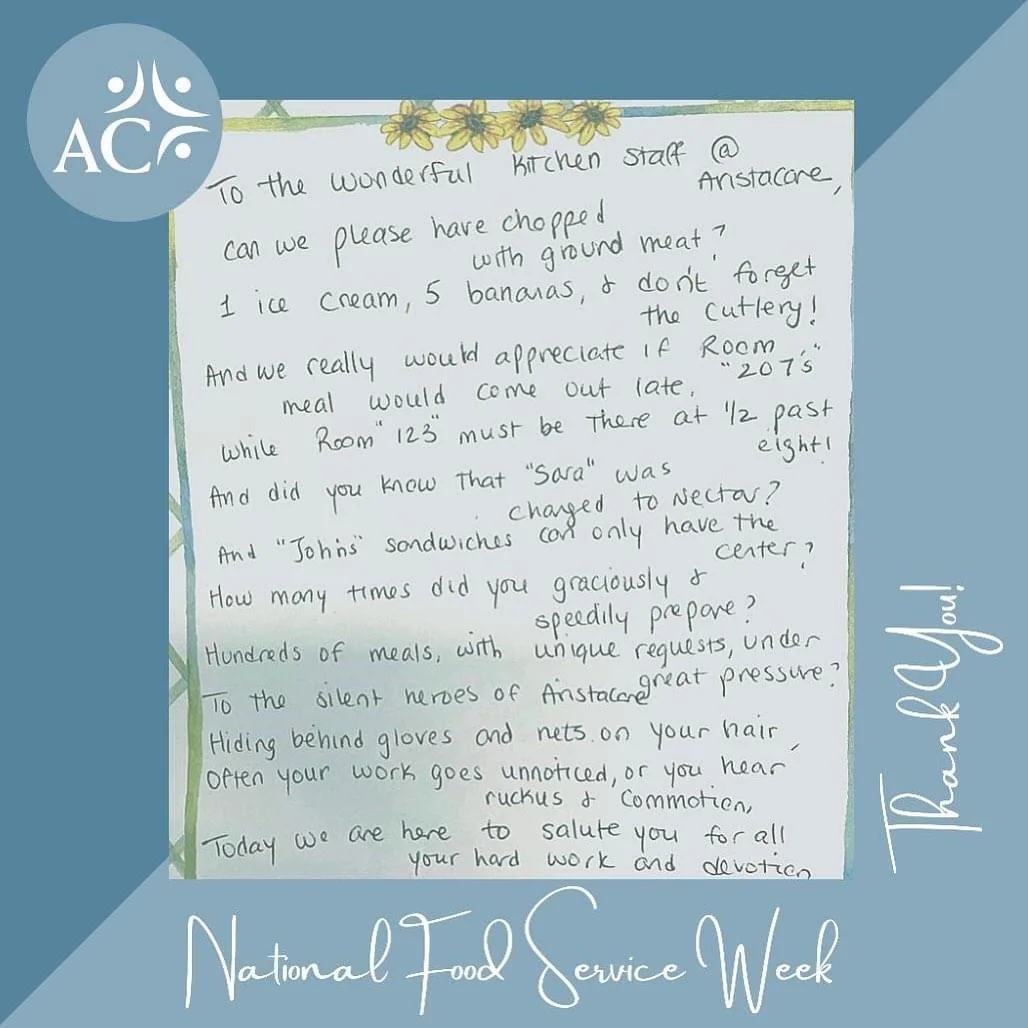 AC
To the wonderful kitchen staff @
Aristacare,
can we please have chopped
with ground meat?
1 ice cream, 5 bananas, & don't forget
the cutlery!
And we really would appreciate if Room
"207's"
meal would come out late,
while Room "123" must be there at 1/2 past
eight!
And did you know that "Sara" was
changed to Nectar?
And "John's" sandwiches can only have the
center?
How many times did you graciously &
speedily prepare?
Hundreds of meals, with unique requests, under
great pressure?
To the silent heroes of Aristacare
Hiding behind gloves and nets on your hair,
Often your work goes unnoticed, or you hear
ruckus & commotion,
Today we are here to salute you for all
your hard work and devotion
Thank You!
National Food Service Week